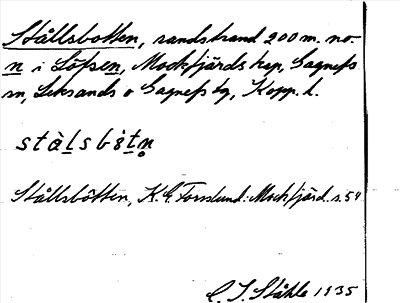 Stållsbotten, sandstrand 200 m. no.
n i Löfsen, Mockfjärds kap, Gagnefs
sn, Leksands o Gagnefs tg, Kopp. l.
stålsbötn
Stållsbötten, K. E. Forsslund: Mockfjärd. s. 59
C. I. Ståhle 1935